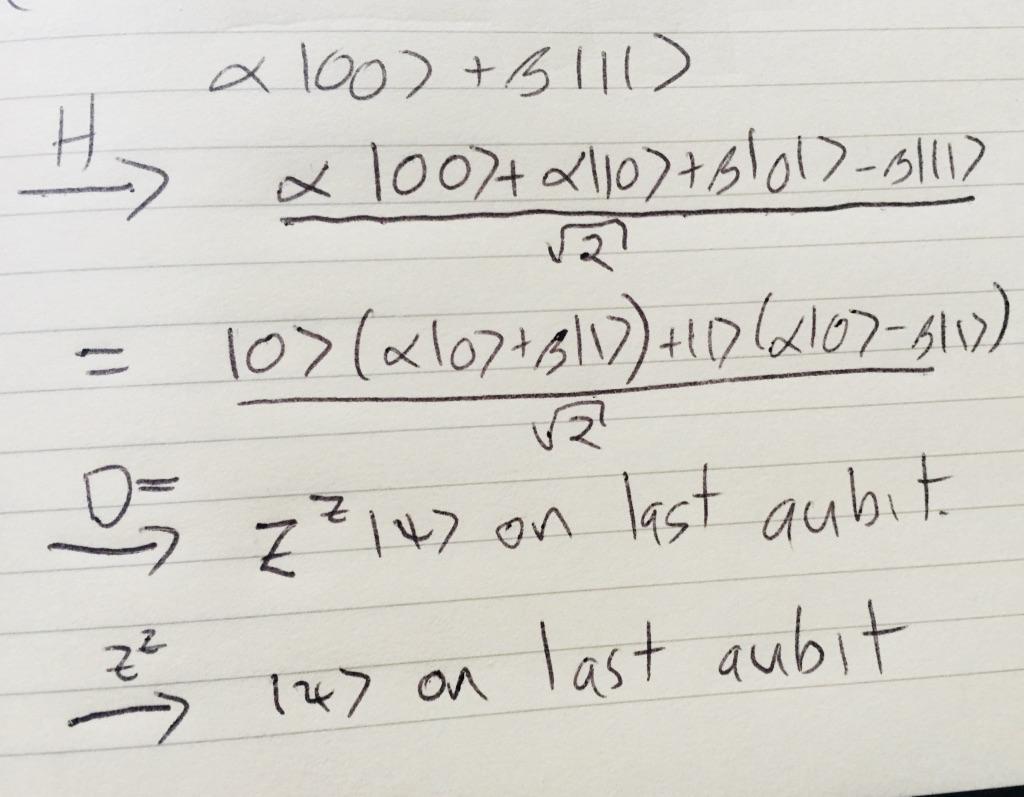 α|00⟩ + β|11⟩
H → (α|00⟩ + α|10⟩ + β|01⟩ - β|11⟩) / √2
= (|0⟩(α|0⟩ + β|1⟩) + |1⟩(α|0⟩ - β|1⟩)) / √2
→ Z^z |ψ⟩ on last qubit.
Z^z → |ψ⟩ on last qubit